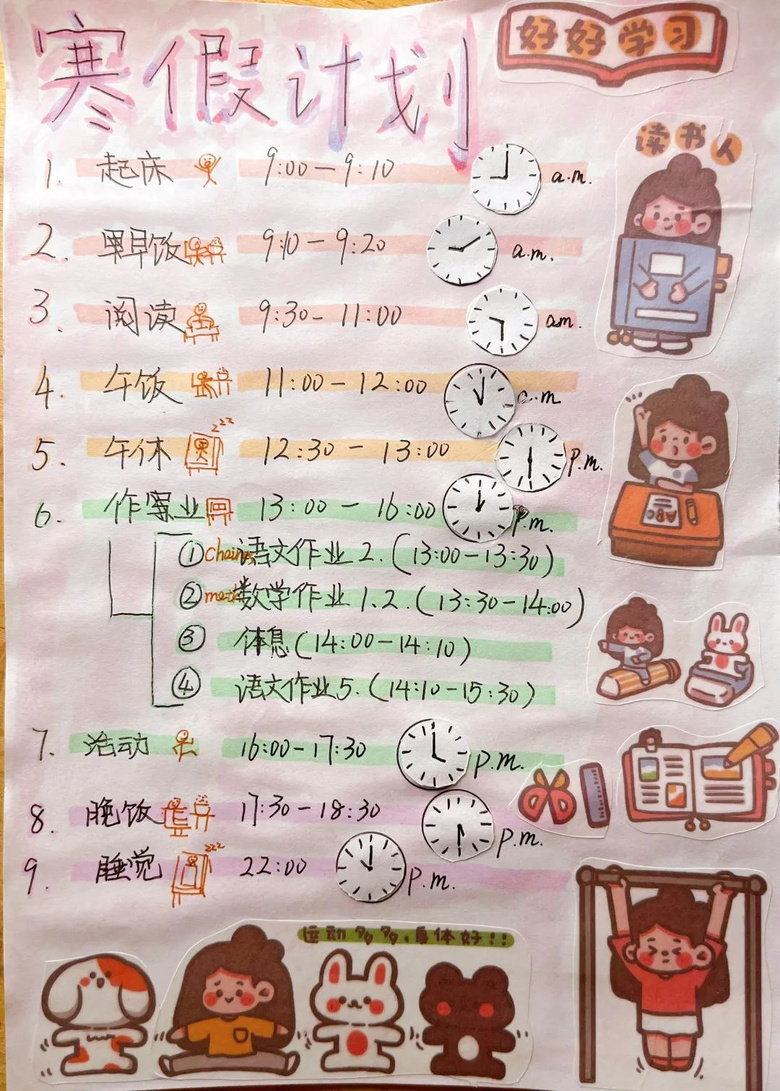 寒假计划
好好学习
读书人
1. 起床 9:00—9:10 a.m.
2. 早饭 9:10—9:20 a.m.
3. 阅读 9:30—11:00 am.
4. 午饭 11:00—12:00 a.m
5. 午休 zzz 12:30—13:00 p.m.
6. 作业 13:00—16:00 p.m.
① 语文作业2.(13:00—13:30)
② 数学作业1.2.(13:30—14:00)
③ 休息(14:00—14:10)
④ 语文作业5.(14:10—15:30)
7. 活动 16:00—17:30 p.m.
8. 晚饭 17:30—18:30 p.m.
9. 睡觉 zzz 22:00 p.m.
运动多多,身体好!!